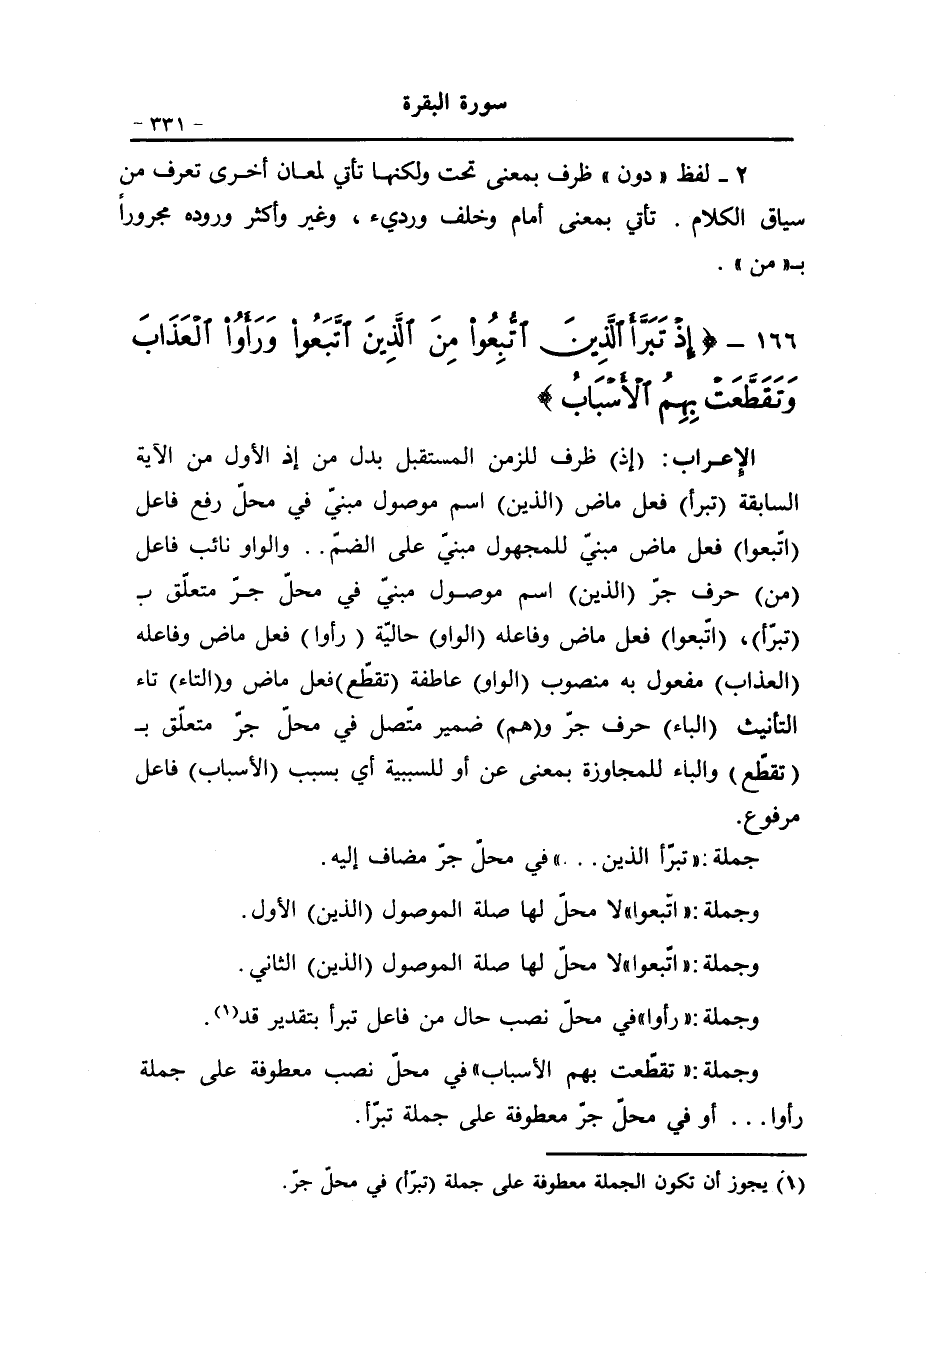 سورة البقرة
- ٣٣١ -
٢ ـ لفظ « دون » ظرف بمعنى تحت ولكنها تأتي لمعان أخرى تعرف من
سياق الكلام . تأتي بمعنى أمام وخلف ورديء ، وغير وأكثر وروده مجروراً
بـ« من » .
١٦٦ ـ ﴿ إِذْ تَبَرَّأَ ٱلَّذِينَ ٱتُّبِعُوا۟ مِنَ ٱلَّذِينَ ٱتَّبَعُوا۟ وَرَأَوُا۟ ٱلْعَذَابَ
وَتَقَطَّعَتْ بِهِمُ ٱلْأَسْبَابُ ﴾
الإعراب: (إذ) ظرف للزمن المستقبل بدل من إذ الأول من الآية
السابقة (تبرأ) فعل ماض (الذين) اسم موصول مبنيّ في محلّ رفع فاعل
(اتّبعوا) فعل ماض مبنيّ للمجهول مبنيّ على الضمّ.. والواو نائب فاعل
(من) حرف جرّ (الذين) اسم موصول مبنيّ في محلّ جرّ متعلّق ب
(تبرّأ)، (اتّبعوا) فعل ماض وفاعله (الواو) حاليّة ( رأوا) فعل ماض وفاعله
(العذاب) مفعول به منصوب (الواو) عاطفة (تقطّع)فعل ماض و(التاء) تاء
التأنيث (الباء) حرف جرّ و(هم) ضمير متّصل في محلّ جرّ متعلّق بـ
(تقطّع) والباء للمجاوزة بمعنى عن أو للسببية أي بسبب (الأسباب) فاعل
مرفوع.
جملة :« تبرّأ الذين...» في محلّ جرّ مضاف إليه.
وجملة :« اتّبعوا»لا محلّ لها صلة الموصول (الذين) الأول.
وجملة :« اتّبعوا»لا محلّ لها صلة الموصول (الذين) الثاني.
وجملة :« رأوا»في محلّ نصب حال من فاعل تبرأ بتقدير قد(١).
وجملة :« تقطّعت بهم الأسباب» في محلّ نصب معطوفة على جملة
رأوا... أو في محلّ جرّ معطوفة على جملة تبرّأ.
(١) يجوز أن تكون الجملة معطوفة على جملة (تبرّأ) في محلّ جرّ.